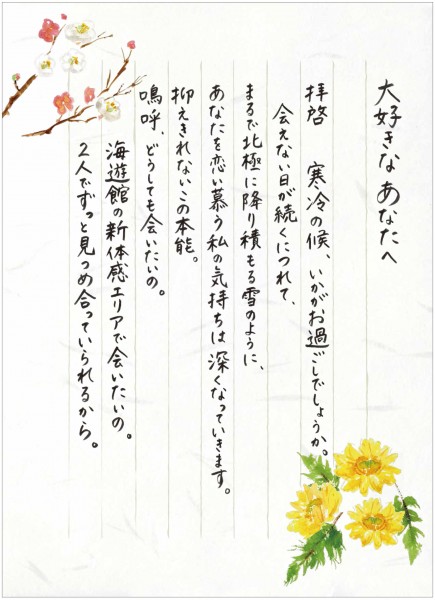 大好きなあなたへ
拝啓　寒冷の候、いかがお過ごしでしょうか。
会えない日が続くにつれて、
まるで北極に降り積もる雪のように、
あなたを恋い慕う私の気持ちは深くなっていきます。
抑えきれないこの本能。
嗚呼、どうしても会いたいの。
海遊館の新体感エリアで会いたいの。
2人でずっと見つめ合っていられるから。